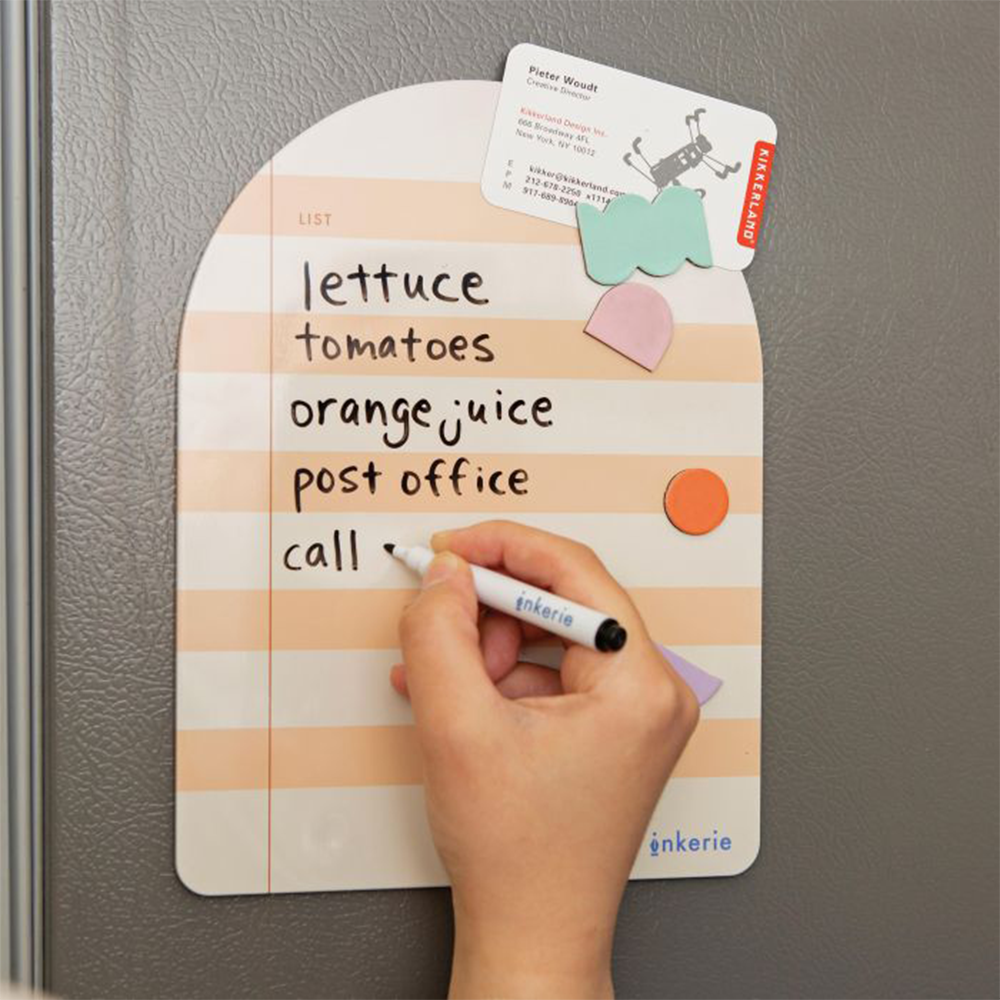 Pieter Woudt
Creative Director
Kikkerland Design Inc.
666 Broadway 4FL
New York, NY 10012
E kikker@kikkerland.com
P 212-678-2250 x1114
M 917-689-890
KIKKERLAND
LIST
lettuce
tomatoes
orange juice
post office
call
inkerie
inkerie